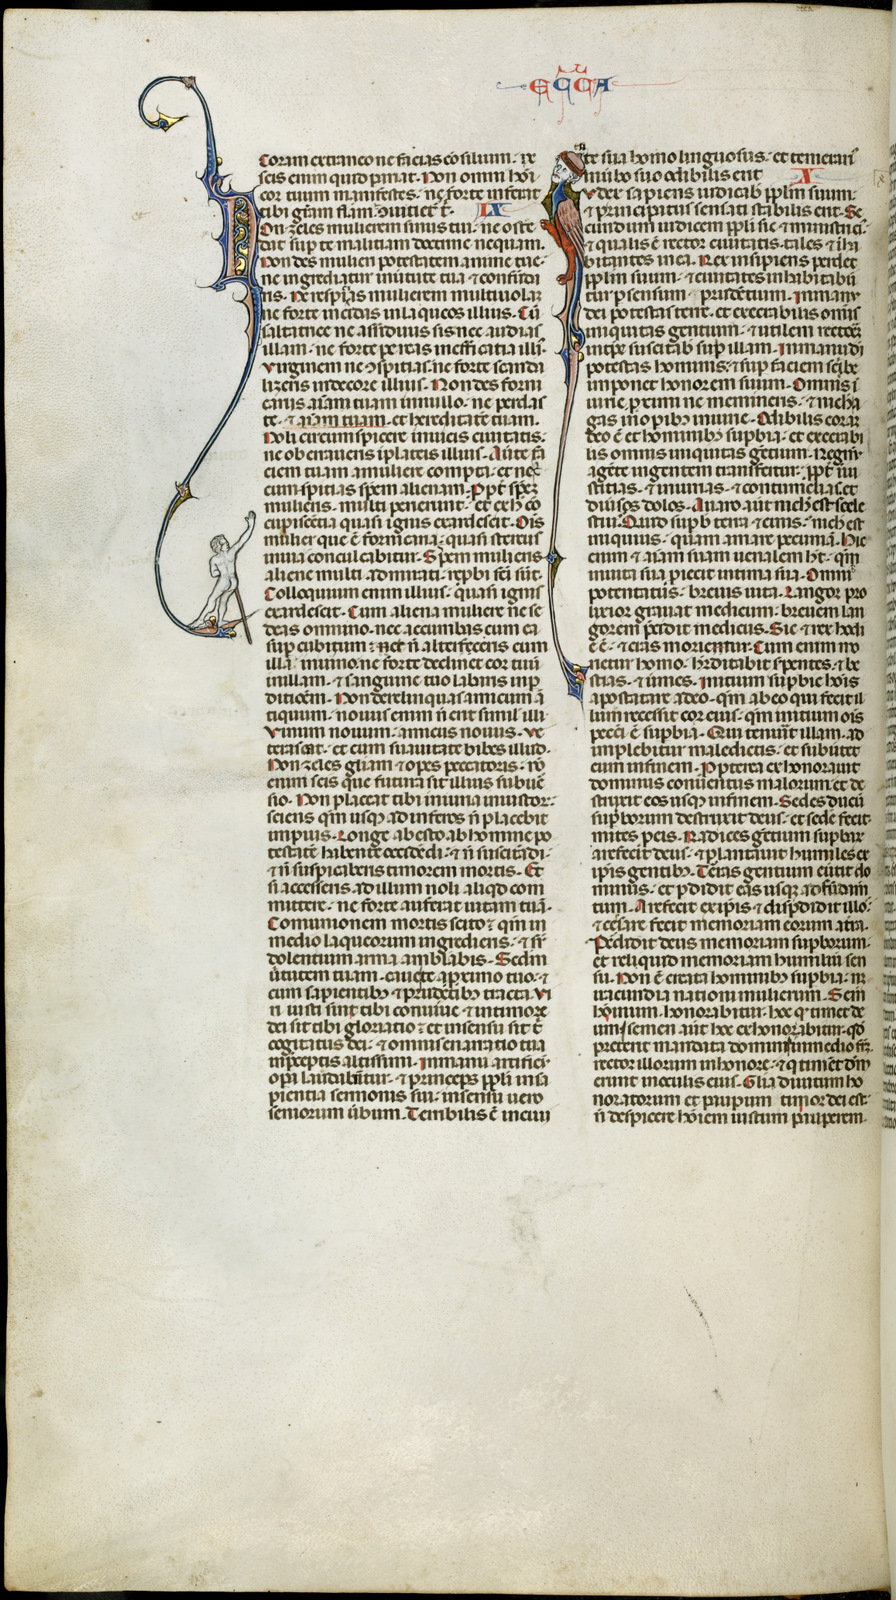 ECCA
Coram extraneo ne facias cosilium. ne
scis enim quid pariat. Non omni hoi
cor tuum manifestes. ne forte inferat
tibi gram flam. 7 uitiet t.
IX
Non zeles mulierem sinus tui. ne oste
dat sup te malitiam doctrine nequam.
Non des mulieri potestatem anime tue.
ne ingrediatur in uitute tua 7 confudi
ris. Ne respicias mulierem multiuola
ne forte incidas in laqueos illius. Cu
saltatrice ne assiduus sis nec audias
illam. ne forte pereas in efficatia illi.
Virginem ne 9spitias. ne forte scanda
lizeris in decore illius. Non des forni
cariis aiam tuam in nullo. ne perdas
te. 7 aiam tuam. et hereditate tuam.
Noli circumspicere in uicis ciuitatis.
ne oberraueris i plateis illius. Auerte fa
ciem tuam a muliere compta. et ne
cumspitias spem alienam. Ppt spem
mulieris. multi perierunt. et ex h co
cupiscetia quasi ignis exardescit. Ois
mulier que e fornicaria. quasi stercus
in uia conculcabitur. Spem mulieris
aliene multi admirati. reprobi fci sut.
Colloquium enim illius. quasi ignis
exardescit. Cum aliena muliere ne se
deas omnino. nec accumbas cum ea
sup cubitum. 7 n alterceris cum
illa in uino ne forte declinet cor tuu
in illam. 7 sanguine tuo labaris in p
ditioem. Non derelinquas amicum a
tiquum. nouus enim n erit simil illi.
Vinum nouum. amicus nouus. ue
terascat. et cum suauitate bibes illud.
Non zeles gliam 7 opes peccatoris. no
enim scis que futura sit illius subue
sio. Non placeat tibi iniuria iniustor.
sciens qm usq ad inferos n placebit
impius. Longe abesto ab homine po
testate habente occidedi. 7 n suscitadi.
7 n suspicaberis timorem mortis. Et
si accessens ad illum noli aliqd com
mittere. ne forte auferat uitam tua.
Comunionem mortis scito. qm in
medio laqueorum ingrediens. 7 sr
dolentium arma amblabis. Scdm
uirtutem tuam. caue te a pximo tuo. 7
cum sapientibz 7 prudetibz tracta. Vi
ri iusti sint tibi conuiue 7 in timore
dei sit tibi gloriatio. et in sensu sit t
cogitatus dei. 7 omnis enarratio tua
in preceptis altissimi. In manu artifici
opa laudabutur. 7 princeps ppli in sa
pientia sermonis sui. in sensu uero
seniorum ubum. Terribilis e in ciui
te sua homo linguosus. et temerari
in ubo suo odibilis erit
X
udex sapiens iudicab pplm suum.
7 principatus sensati stabilis erit. Se
cundum iudicem ppli sic 7 ministri ei.
7 qualis e rector ciuitatis. tales 7 iha
bitantes in ea. Rex insipiens perdet
pplm suum. 7 ciuitates inhabitabu
tur p sensum prudetium. In manu
dei potestas terre. et execrabilis omis
iniquitas gentium. 7 utilem rectore
in tpe suscitab sup illam. In manu di
potestas hominis. 7 sup faciem scibe
imponet honorem suum. Omnis i
iurie primi ne memineris. 7 nich a
gas in opibz iniurie. Odibilis coram
deo e et hominibz supbia. et execrabi
lis omnis iniquitas getium. Regnu
a gete in gentem transfertur. ppt iniu
stitias. 7 iniurias. 7 contumelias. et
diuisos dolos. Auaro aut nich est scele
stiu. Quid supb terra 7 cinis. nich est
iniquius. quam amare pecunia. Hic
enim 7 aiam suam uenalem ht. qm
in uita sua piecit intima sua. Omni
potentatus. breuis uita. Langor pro
lixior grauat medicum. breuem lan
gorem pcidit medicus. Sic 7 rex hodi
e e. 7 cras morietur. Cum enim mo
rietur homo. hditabit spentes. 7 be
stias. 7 uimes. Initium supbie hois
apostatare a deo. qm ab eo qui fecit il
lum recessit cor eius. qm initium ois
pecci e supbia. Qui tenuit illam. ad
implebitur maledictis. et subuitet
eum in finem. Ppterea exhonorauit
dominus conuentus malorum et de
struxit eos usq in finem. Sedes ducu
supborum destruxit deus. et sede fecit
mites p eis. Radices getium supbar
arefecit deus. 7 plantauit humiles ex
ipsis gentibz. Terras gentium euitit do
minus. et pdidit eas usq ad fundam
tum. Arefecit ex ipsis 7 dispdidit illo
7 cessare fecit memoriam eorum a tra.
Perdidit deus memoriam supborum.
et reliquid memoriam humiliu sen
su. Non e creata hominibz supbia. n
iracundia nationi mulierum. Semen
hominum. honorabitur. hoc q timet de
um. semen aut hoc exhonorabitur. qd
preterit mandata domini. In medio frm
rector illorum in honore. 7 q timet dm
erunt in oculis eius. Glia diuitum ho
noratorum et paupum timor dei est.
n despicere hoiem iustum pauperem.